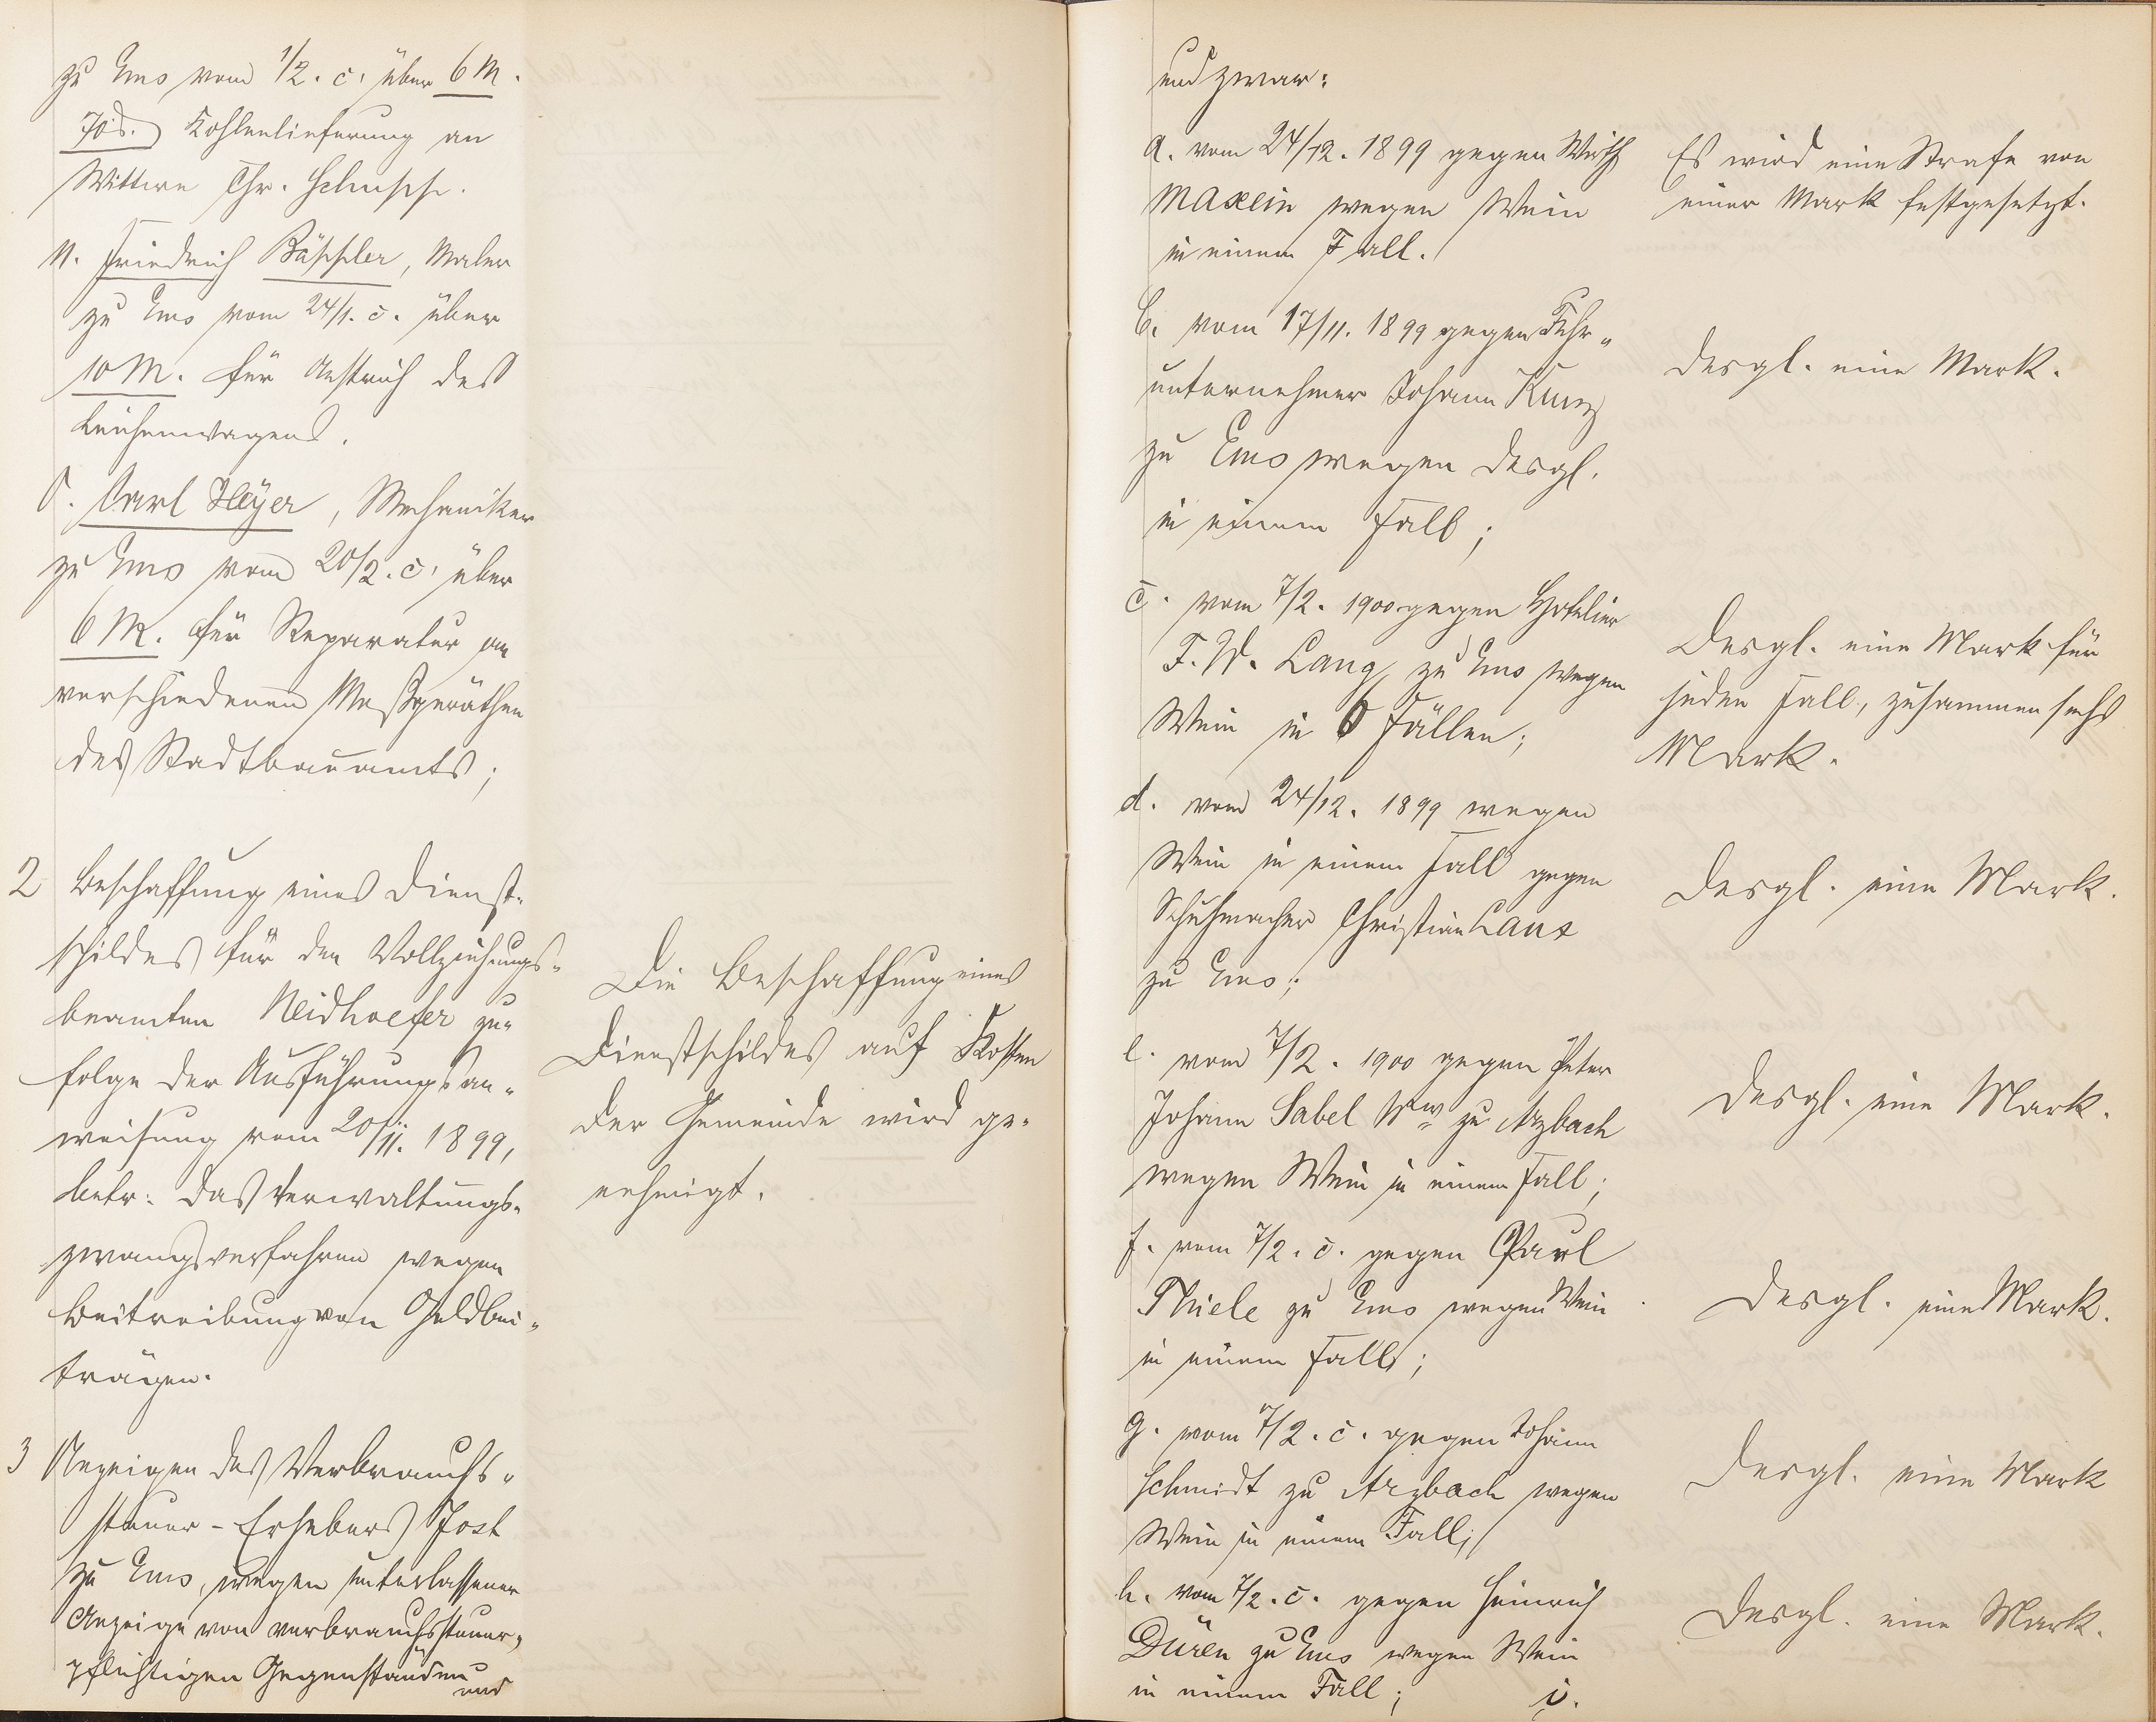 zu Ems vom 1/2. c. über 6 M.
70 d. Kohlenlieferung an
Wittwe Chr. Schupp.
n. Friedrich Bäppler, Maler
zu Ems vom 24/1. c. über
10 M. für Anstrich des
Leichenwagens.
o. Carl Heyer, Mechaniker
zu Ems vom 20/2. c. über
6 M. für Reparatur an
verschiedenen Meßgeräthen
des Stadtbauamts;
2 Beschaffung eines Dienst-
schildes für den Vollziehungs-
beamten Neidhoefer zu-
folge der Ausführungsan-
weisung vom 20/11. 1899,
betr. das Verwaltungs-
zwangsverfahren wegen
Beitreibung von Geldbei-
trägen.
Die Beschaffung eines
Dienstschildes auf Kosten
der Gemeinde wird ge-
nehmigt.
3 Anzeigen des Verbrauchs-
steuer-Erhebers Jost
zu Ems, wegen unterlassener
Anzeige von verbrauchssteuer-
pflichtigen Gegenständen
und
und zwar:
a. vom 24/12. 1899 gegen Wirth
Maxein wegen Wein
in einem Fall.
Es wird eine Strafe von
einer Mark festgesetzt.
b. vom 17/11. 1899 gegen Fuhr-
unternehmer Johann Kunz
zu Ems wegen desgl.
in einem Fall;
desgl. eine Mark.
c. vom 7/2. 1900 gegen Hotelier
F. W. Lang zu Ems wegen
Wein in 6 Fällen;
Desgl. eine Mark für
jeden Fall, zusammen sechs
Mark.
d. vom 24/12. 1899 wegen
Wein in einem Fall gegen
Schuhmacher Christian Lanz
zu Ems;
Desgl. eine Mark.
e. vom 7/2. 1900 gegen Peter
Johann Sabel Ww zu Arzbach
wegen Wein in einem Fall;
Desgl. eine Mark.
f. vom 7/2. c. gegen Paul
Thiele zu Ems wegen Wein
in einem Fall;
Desgl. eine Mark.
g. vom 7/2. c. gegen Johann
Schmidt zu Arzbach wegen
Wein in einem Fall;
Desgl. eine Mark
h. vom 7/2. c. gegen Heinrich
Düren zu Ems wegen Wein
in einem Fall;
Desgl. eine Mark.
i.